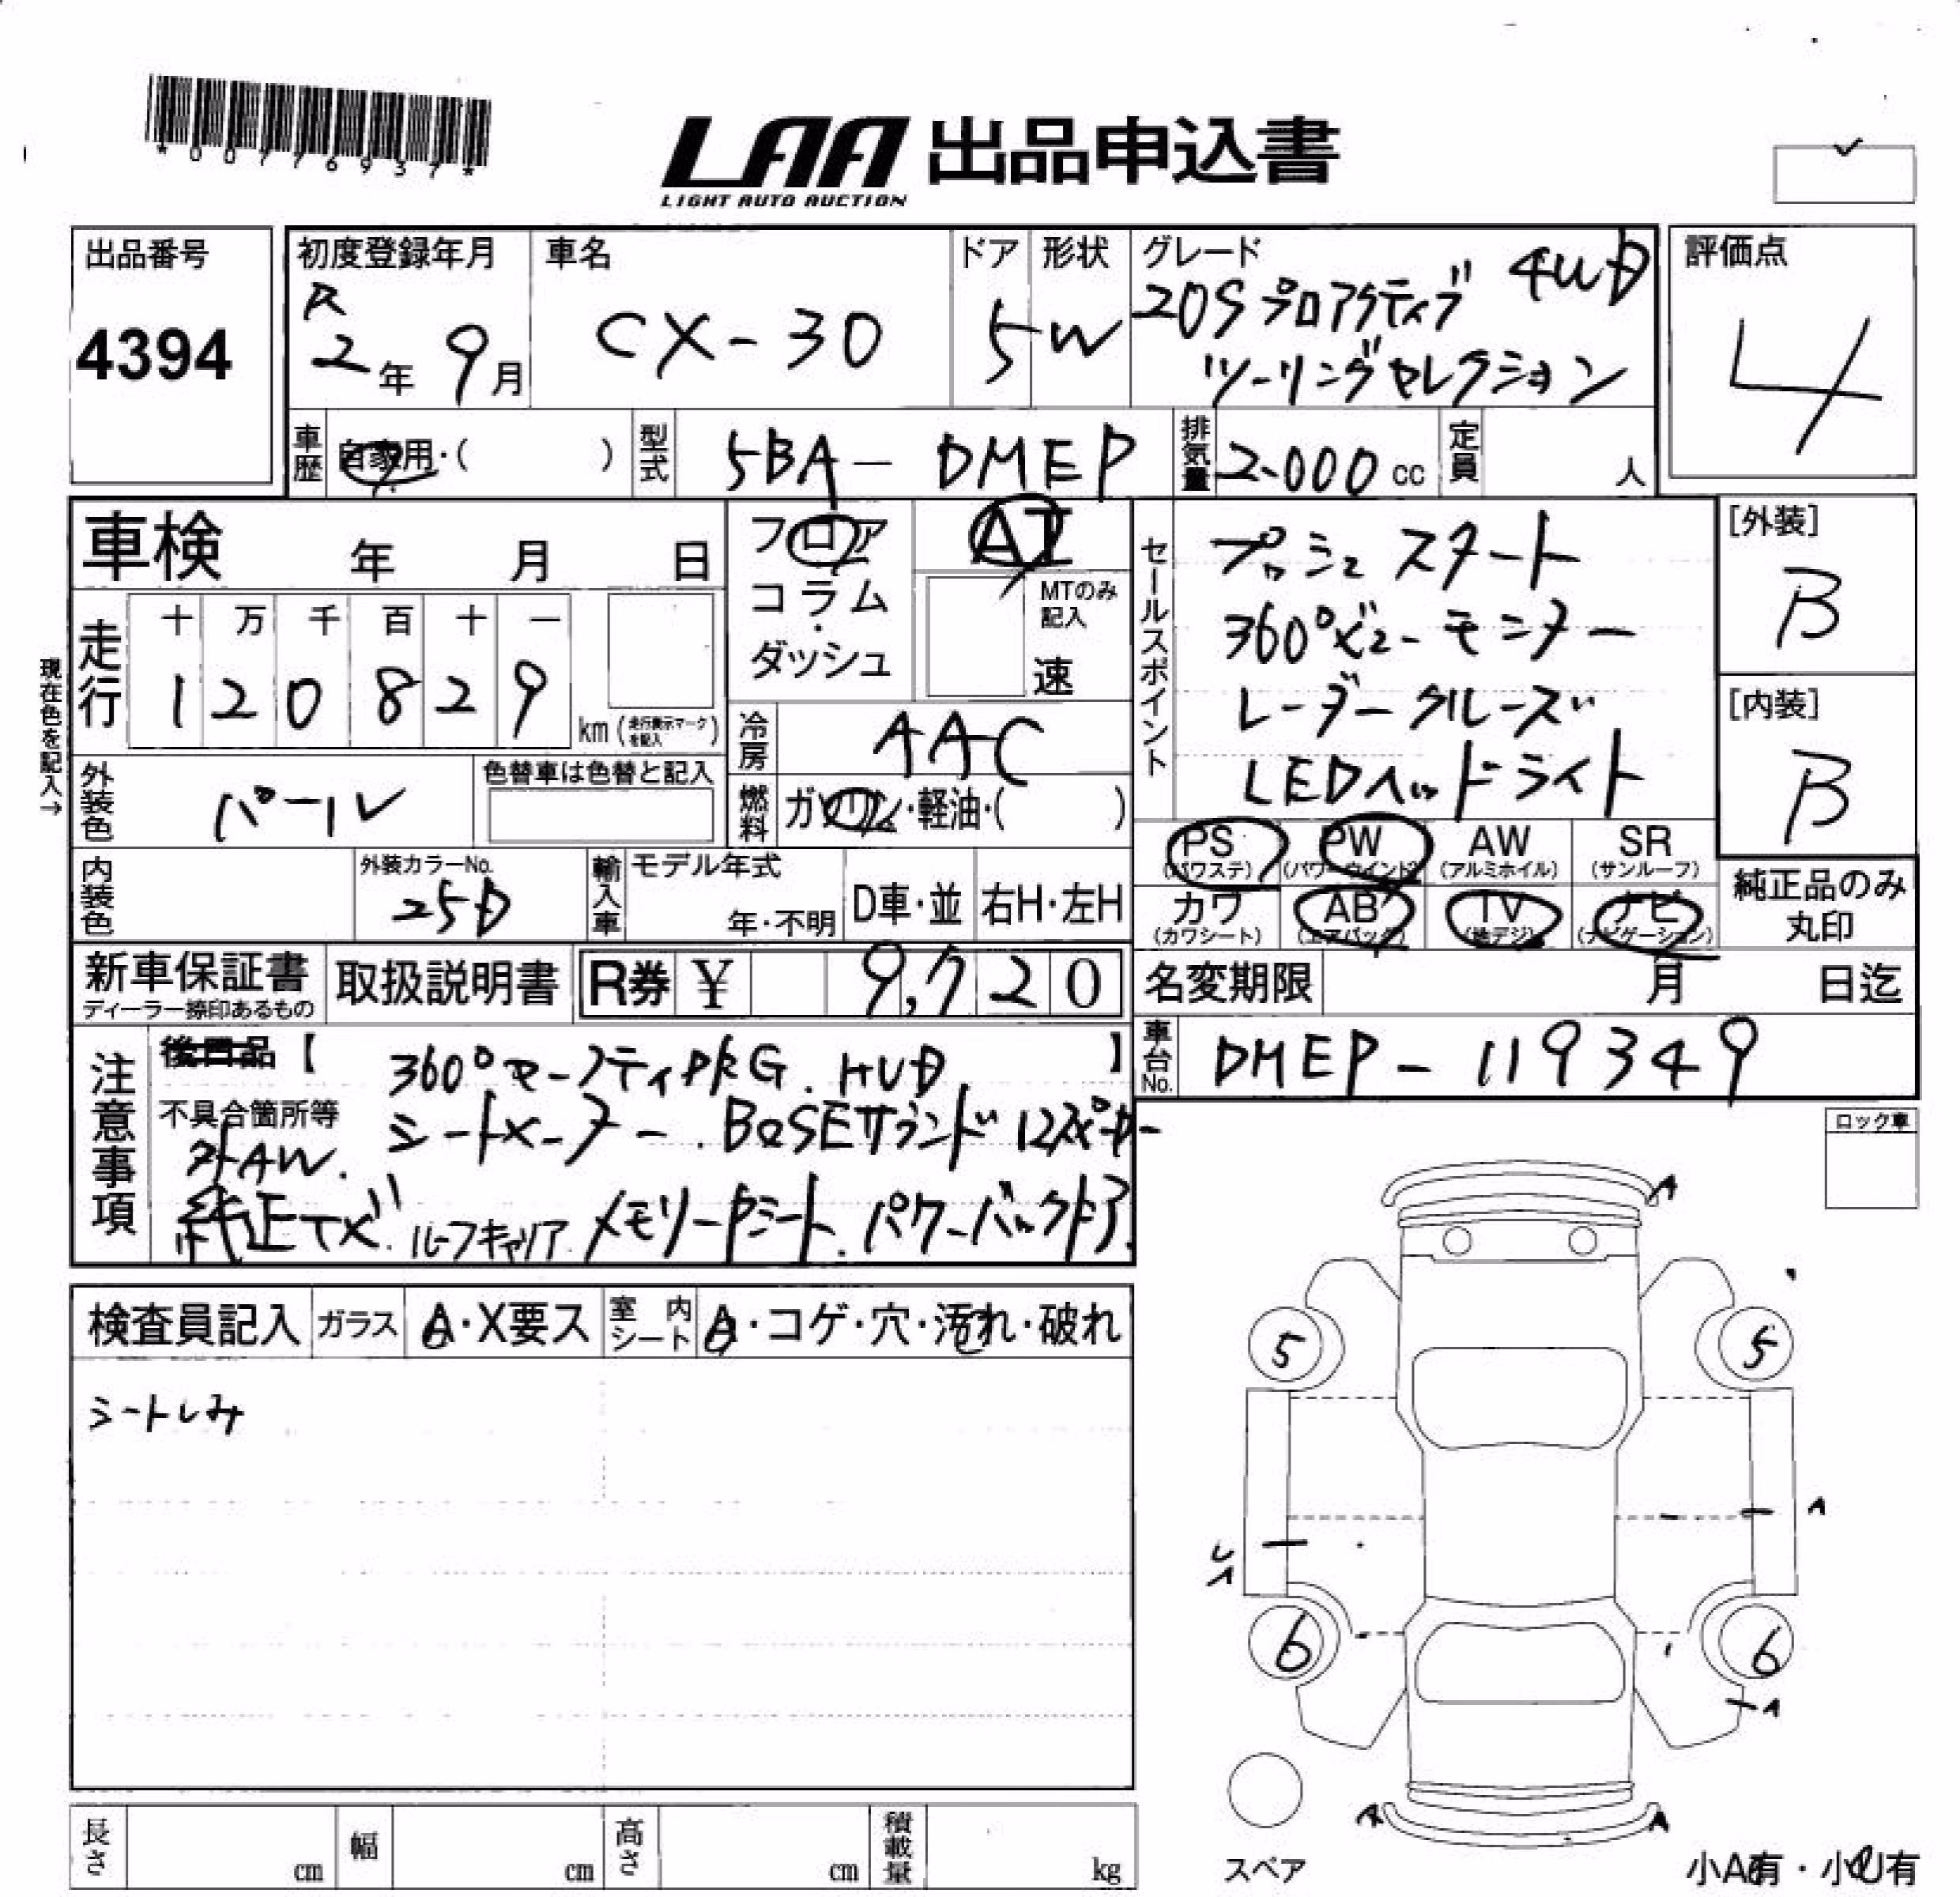 *00776937*
LAA 出品申込書
LIGHT AUTO AUCTION
出品番号
4394
初度登録年月
R
2年 9月
車名
CX-30
ドア
5
形状
W
グレード
20S プロアクティブ 4WD
ツーリングセレクション
評価点
4
車歴 自家用・( )
型式 5BA-DMEP
排気量 2.000 cc
定員 人
車検 年 月 日
フロア
コラム
・
ダッシュ
AT
MTのみ
記入
速
セールスポイント
プッシュスタート
360°ビューモニター
レーダークルーズ
LEDヘッドライト
[外装]
B
[内装]
B
現在色を記入→
走行
十 万 千 百 十 一
1 2 0 8 2 9
km (走行表示マークを記入)
冷房 AAC
外装色 パール
色替車は色替と記入
燃料 ガソリン・軽油・( )
PS AW SR PW
(パワステ) (パワーウインド) (アルミホイル) (サンルーフ)
カワ AB TV ナビ
(カワシート) (エアバック) (地デジ) (ナビゲーション)
純正品のみ
丸印
内装色
外装カラーNo.
25D
輸入車
モデル年式
年・不明
D車・並
右H・左H
新車保証書
ディーラー捺印あるもの
取扱説明書
R券 ¥ 9,720
名変期限 月 日迄
注意事項
後日品【 360°セーフティPKG. HUD 】
不具合箇所等
シートヒーター. BOSEサウンド 12スピーカー
外AW.
純正TVﾞ. ルーフキャリア. メモリーPシート. パワーバックドア.
車台No. DMEP-119349
ロック車
検査員記入
ガラス A・X要ス
室内シート A・コゲ・穴・汚れ・破れ
シートしみ
A
5 5
A
A
6 6
A
A A
スペア
小A有・小U有
長さ cm
幅 cm
高さ cm
積載量 kg